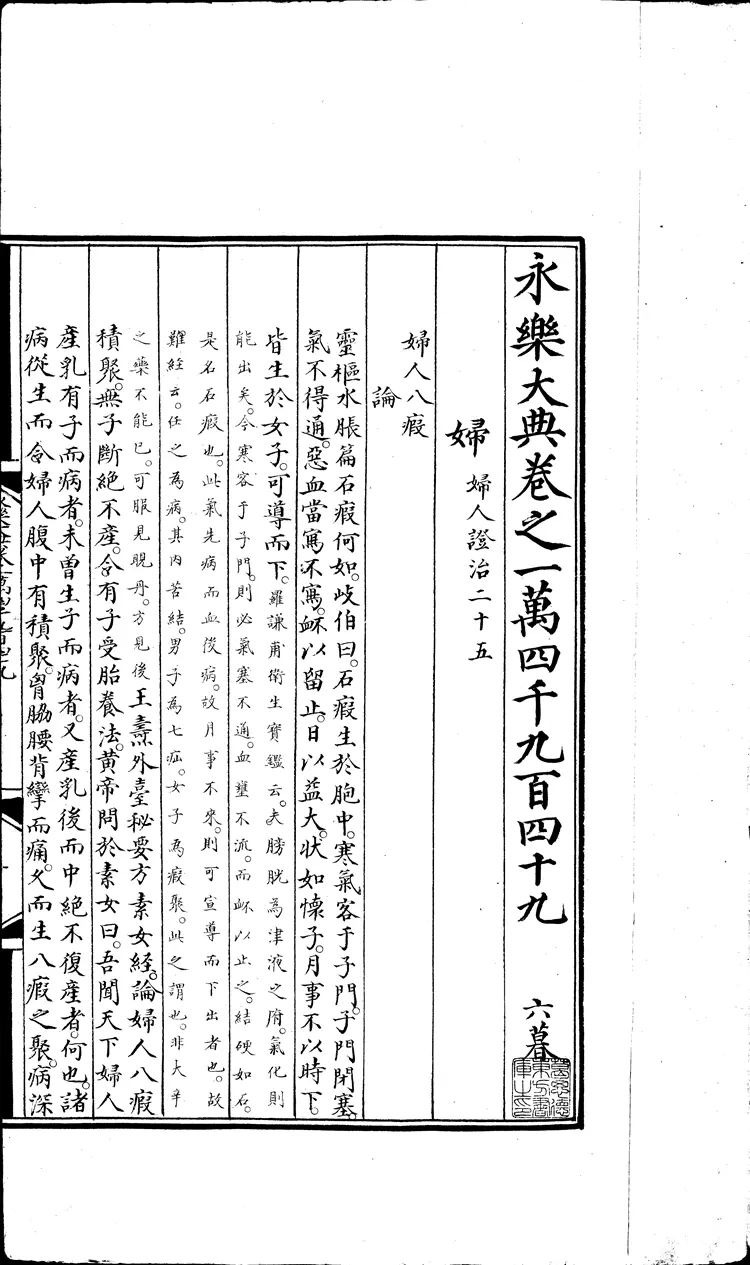 永樂大典卷之一萬四千九百四十九 六暮
婦 婦人證治二十五
婦人八瘕
論
靈樞水脹篇石瘕何如。歧伯曰。石瘕生於胞中。寒氣客于子門。子門閉塞。
氣不得通。惡血當寫不寫。衃以留止。日以益大。狀如懷子。月事不以時下。
皆生於女子。可導而下。羅謙甫衛生寶鑑云。夫膀胱為津液之府。氣化則
能出矣。今寒客于子門。則必氣塞不通。血壅不流。而衃以止之。結硬如石。
是名石瘕也。此氣先病而血後病。故月事不來。則可宣導而下出者也。故
難經云。任之為病。其內苦結。男子為七疝。女子為瘕聚。此之謂也。非大辛
之藥不能已。可服見晛丹。方見後王燾外臺秘要方素女經。論婦人八瘕
積聚。無子斷絕不產。令有子受胎養法。黃帝問於素女曰。吾聞天下婦人
產乳有子而病者。未曾生子而病者。又產乳後而中絕不復產者。何也。諸
病從生而令婦人腹中有積聚。胷脇腰背攣而痛。久而生八瘕之聚。病深